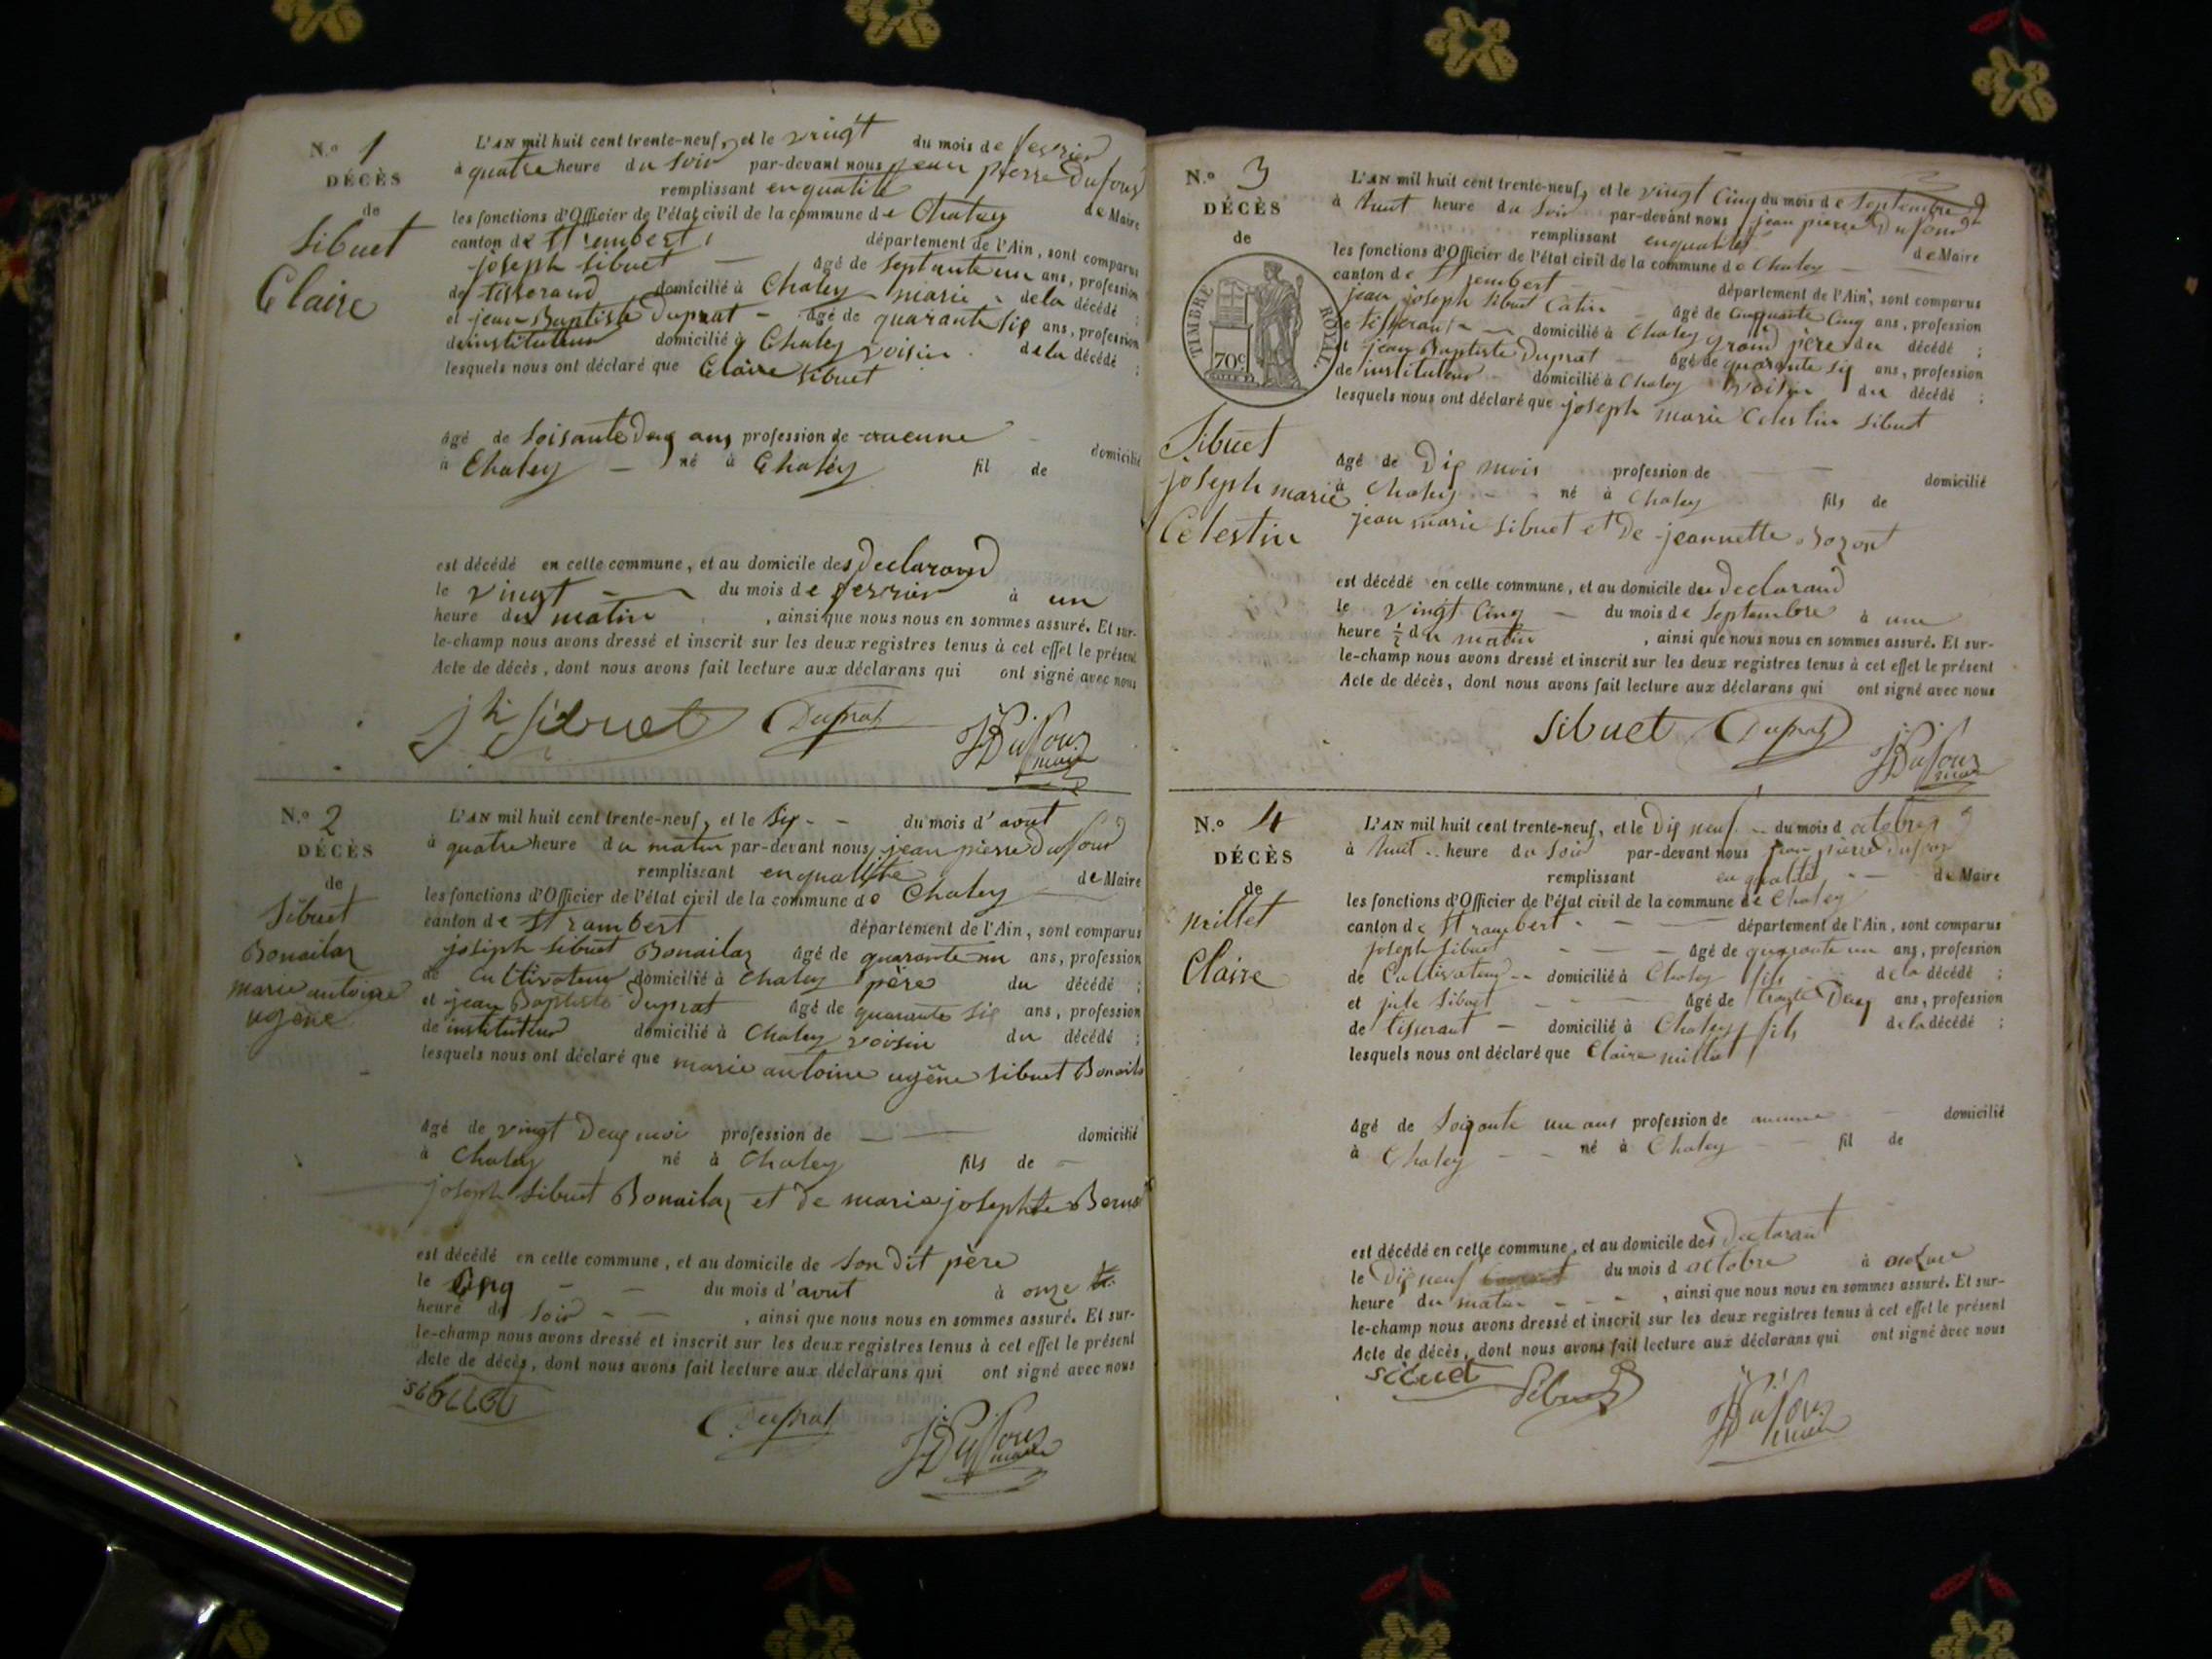 N.o 1
DÉCÈS
de
Sibuet
Claire
L'AN mil huit cent trente-neuf, et le vingt du mois de fevrier
à quatre heure du soir par-devant nous jean pierre Dufour
remplissant en qualité de Maire
les fonctions d'Officier de l'état civil de la commune de Chaley
canton de St rambert département de l'Ain, sont comparus
joseph sibuet âgé de septante un ans, profession
de tisserand domicilié à Chaley marie de la décédé ;
et jean Baptiste Duprat âgé de quarante six ans, profession
de instituteur domicilié à Chaley voisin de la décédé ;
lesquels nous ont déclaré que Claire Sibuet
âgé de soisante Deux ans profession de aucune domicilié
à Chaley né à Chaley fil de
est décédé en cette commune, et au domicile des Declarand
le vingt du mois de fevrier à un
heure du matin, ainsi que nous nous en sommes assuré. Et sur-
le-champ nous avons dressé et inscrit sur les deux registres tenus à cet effet le présent
Acte de décès, dont nous avons fait lecture aux déclarans qui ont signé avec nous
jh Sibuet Duprat JPDufour
maire
N.o 2
DÉCÈS
de
Sibuet
Bonailaz
marie antoine
ugène
L'AN mil huit cent trente-neuf, et le six du mois d'avril
à quatre heure du matin par-devant nous jean pierre Dufour
remplissant en qualité de Maire
les fonctions d'Officier de l'état civil de la commune de Chaley
canton de St rambert département de l'Ain, sont comparus
joseph sibuet Bonailaz âgé de quarante un ans, profession
de Cultivateur domicilié à Chaley père du décédé ;
et jean Baptiste Duprat âgé de quarante six ans, profession
de instituteur domicilié à Chaley voisin du décédé ;
lesquels nous ont déclaré que marie antoine ugène sibuet Bonaila
âgé de vingt Deux moi profession de domicilié
à Chaley né à Chaley fils de
joseph Sibuet Bonailaz et de marie josephte
est décédé en cette commune, et au domicile de son Dit père
le cinq du mois d'avril à onze
heure du soir, ainsi que nous nous en sommes assuré. Et sur-
le-champ nous avons dressé et inscrit sur les deux registres tenus à cet effet le présent
Acte de décès, dont nous avons fait lecture aux déclarans qui ont signé avec nous
sibuet
Duprat JPDufour
maire
N.o 3
DÉCÈS
de
TIMBRE ROYAL
70c
Sibuet
joseph marie
Celestin
L'AN mil huit cent trente-neuf, et le vingt Cinq du mois de Septembre
à huit heure du soir par-devant nous jean pierre Dufour
remplissant en qualité de Maire
les fonctions d'Officier de l'état civil de la commune de Chaley
canton de St rembert département de l'Ain, sont comparus
jean joseph sibuet Catin âgé de cinquante Cinq ans, profession
de tisserant domicilié à Chaley grand père du décédé ;
et jean Baptiste Duprat âgé de quarante six ans, profession
de instituteur domicilié à Chaley voisin du décédé ;
lesquels nous ont déclaré que joseph marie Celestin sibuet
âgé de Dix mois profession de domicilié
à Chaley né à Chaley fils de
jean marie Sibuet et De jeannette Bozont
est décédé en cette commune, et au domicile du Declarand
le vingt Cinq du mois de septembre à une
heure ½ du matin, ainsi que nous nous en sommes assuré. Et sur-
le-champ nous avons dressé et inscrit sur les deux registres tenus à cet effet le présent
Acte de décès, dont nous avons fait lecture aux déclarans qui ont signé avec nous
sibuet Duprat JPDufour
maire
N.o 4
DÉCÈS
de
millet
Claire
L'AN mil huit cent trente-neuf, et le Dix neuf du mois d octobre
à huit heure du soir par-devant nous jean pierre Dufour
remplissant en qualité de Maire
les fonctions d'Officier de l'état civil de la commune de Chaley
canton de St rambert département de l'Ain, sont comparus
joseph sibuet âgé de quarante un ans, profession
de Cultivateur domicilié à Chaley fils de la décédé ;
et jule Sibuet âgé de trente Deux ans, profession
de tisserant domicilié à Chaley fils de la décédé ;
lesquels nous ont déclaré que Claire millet
âgé de soixante un ans profession de aucune domicilié
à Chaley né à Chaley fil de
est décédé en cette commune, et au domicile des Declarant
le Dix neuf du mois d octobre à
heure du matin, ainsi que nous nous en sommes assuré. Et sur-
le-champ nous avons dressé et inscrit sur les deux registres tenus à cet effet le présent
Acte de décès, dont nous avons fait lecture aux déclarans qui ont signé avec nous
sibuet Sibuet JPDufour
maire